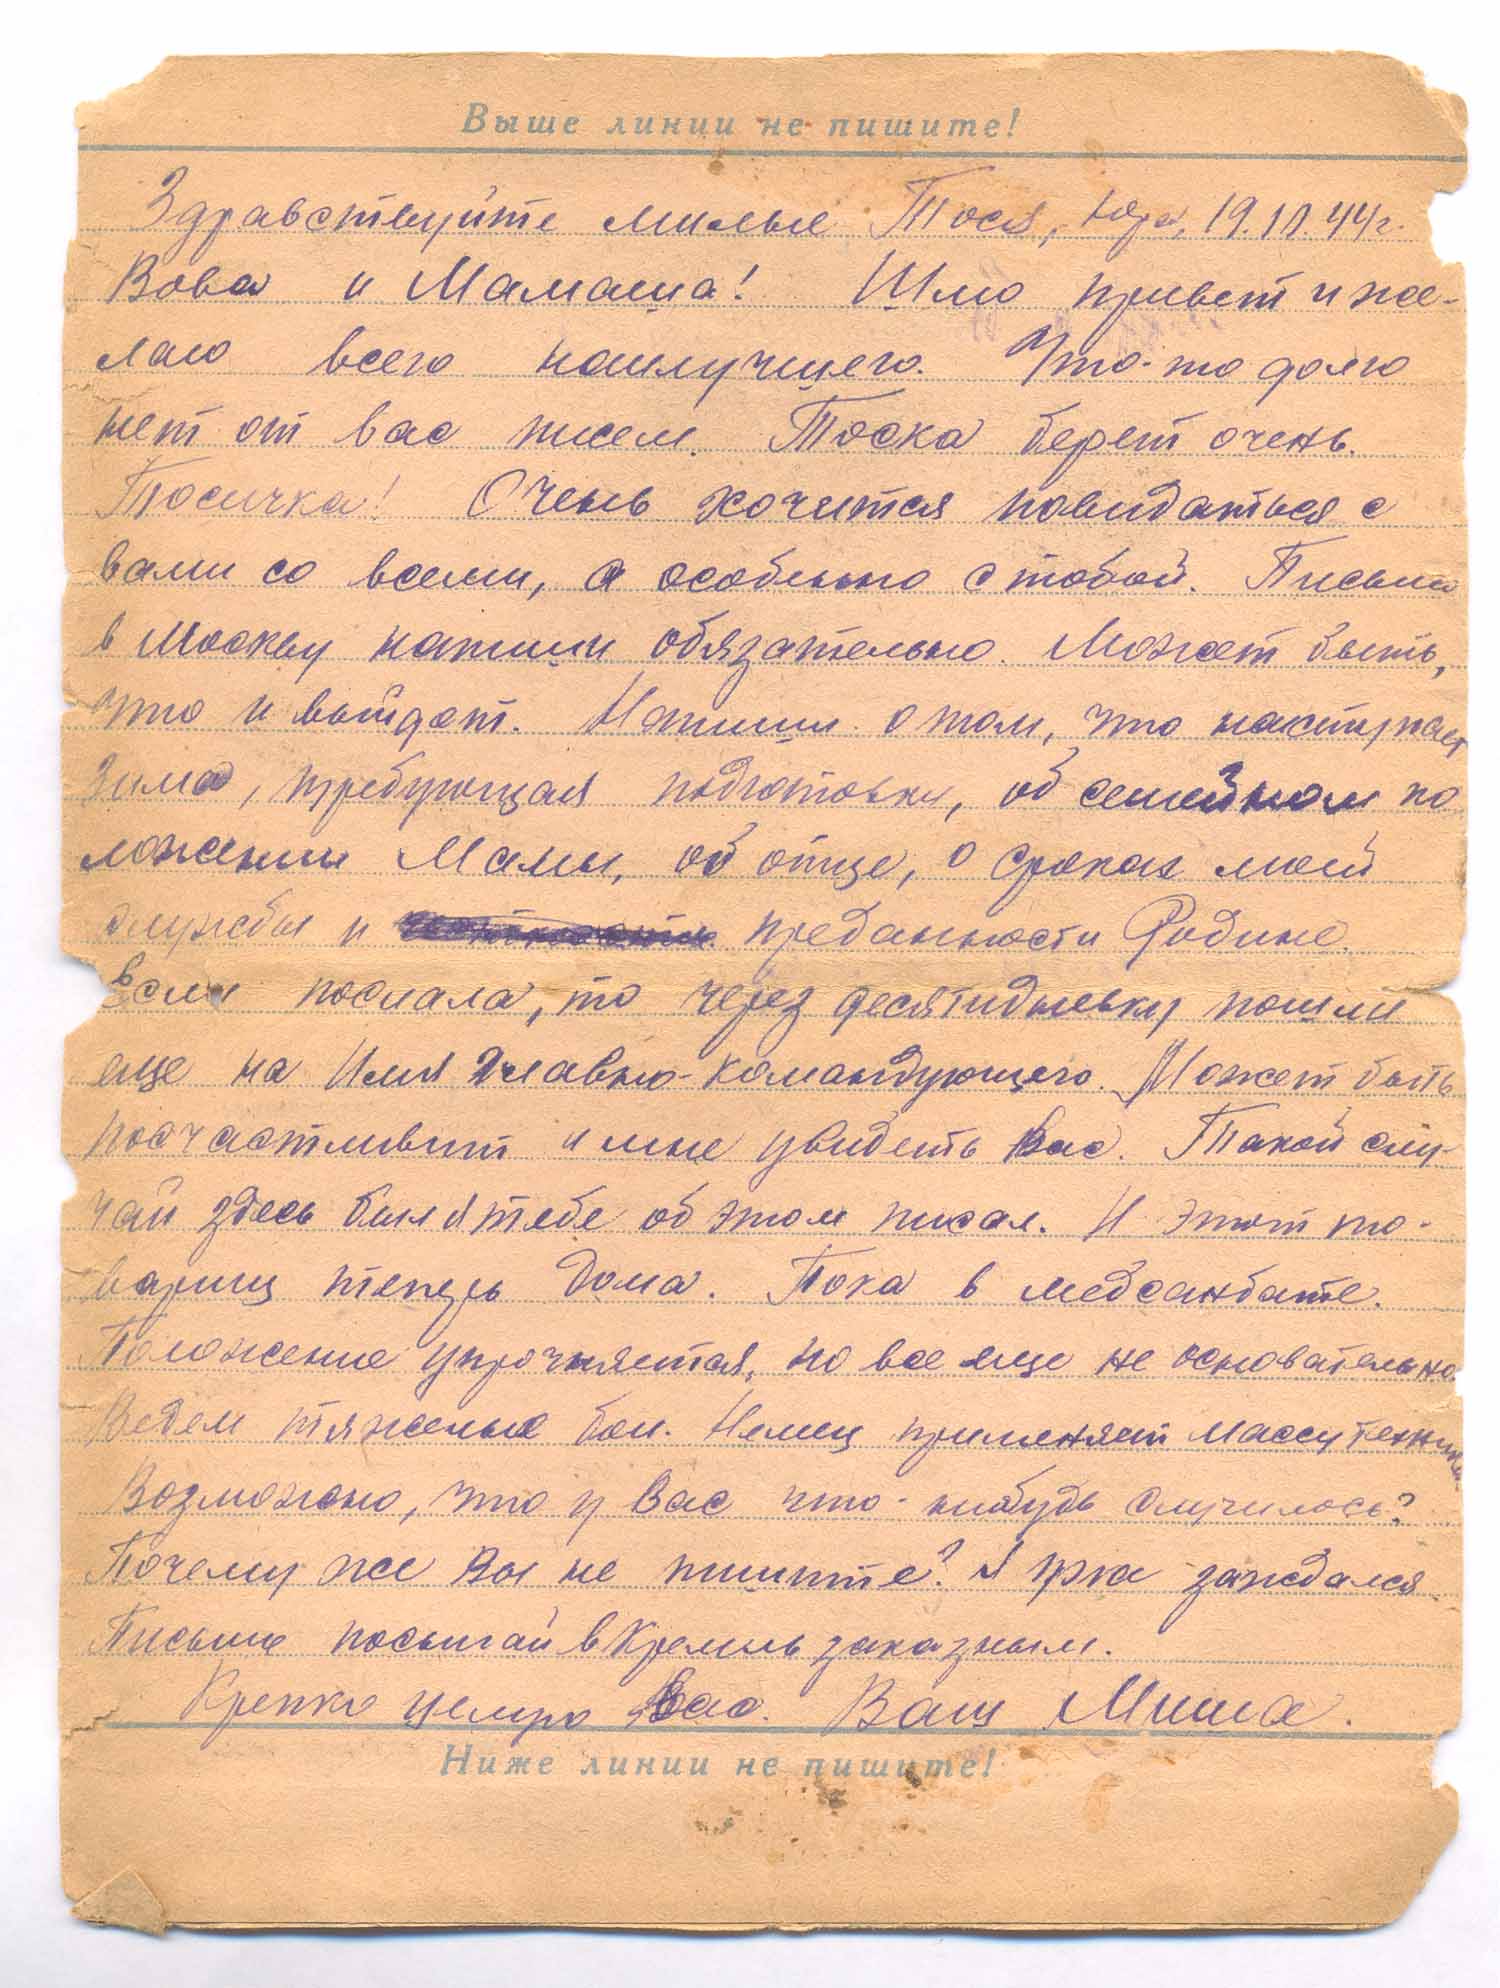 Выше линии не пишите!
Здравствуйте милые Тося, Юра, 19.11.44г.
Вова и Мамаша! Шлю привет и же-
лаю всего наилучшего. Что-то долго
нет от вас писем. Тоска берет очень.
Тосичка! Очень хочится повидаться с
вами со всеми, а особенно с тобой. Письмо
в Москву напиши обязательно. Может быть,
что и выйдет. Напиши о том, что наступает
зима, требующая подготовки, об семейном по
ложении Мамы, об отце, о сроках моей
службы и преданности Родине.
Если послала, то через десятидневку пошли
еще на Имя Главно-командующего. Может быть
посчастливит и мне увидеть Вас. Такой слу-
чай здесь был я тебе об этом писал. И этот то-
варищ теперь дома. Пока в медсанбате.
Положение упрочняется, но все еще не основательно.
Ведем тяжелые бои. Немец применяет массу техники.
Возможно, что у Вас что-нибудь случилось?
Почему же Вы не пишите? Я уже заждался
Письмо посылай в Кремль заказным.
Крепко целую Вас. Ваш Миша.
Ниже линии не пишите!